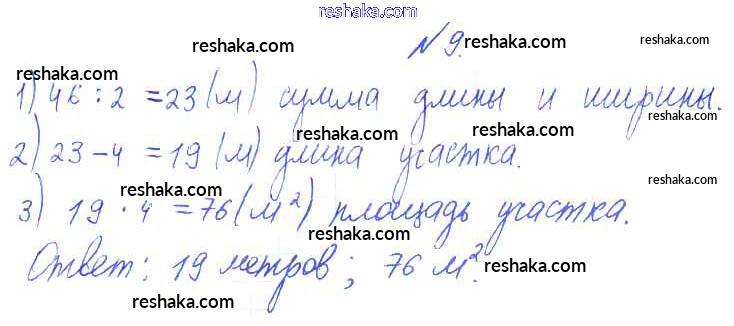 reshaka.com
reshaka.com № 9. reshaka.com
reshaka.com reshaka.com reshaka.com
1) 46 : 2 = 23 (м) сумма длины и ширины.
reshaka.com
2) 23 - 4 = 19 (м) длина участка.
reshaka.com reshaka.com reshaka.com
3) 19 · 4 = 76 (м²) площадь участка.
reshaka.com reshaka.com
Ответ: 19 метров; 76 м².
reshaka.com reshaka.com
reshaka.com